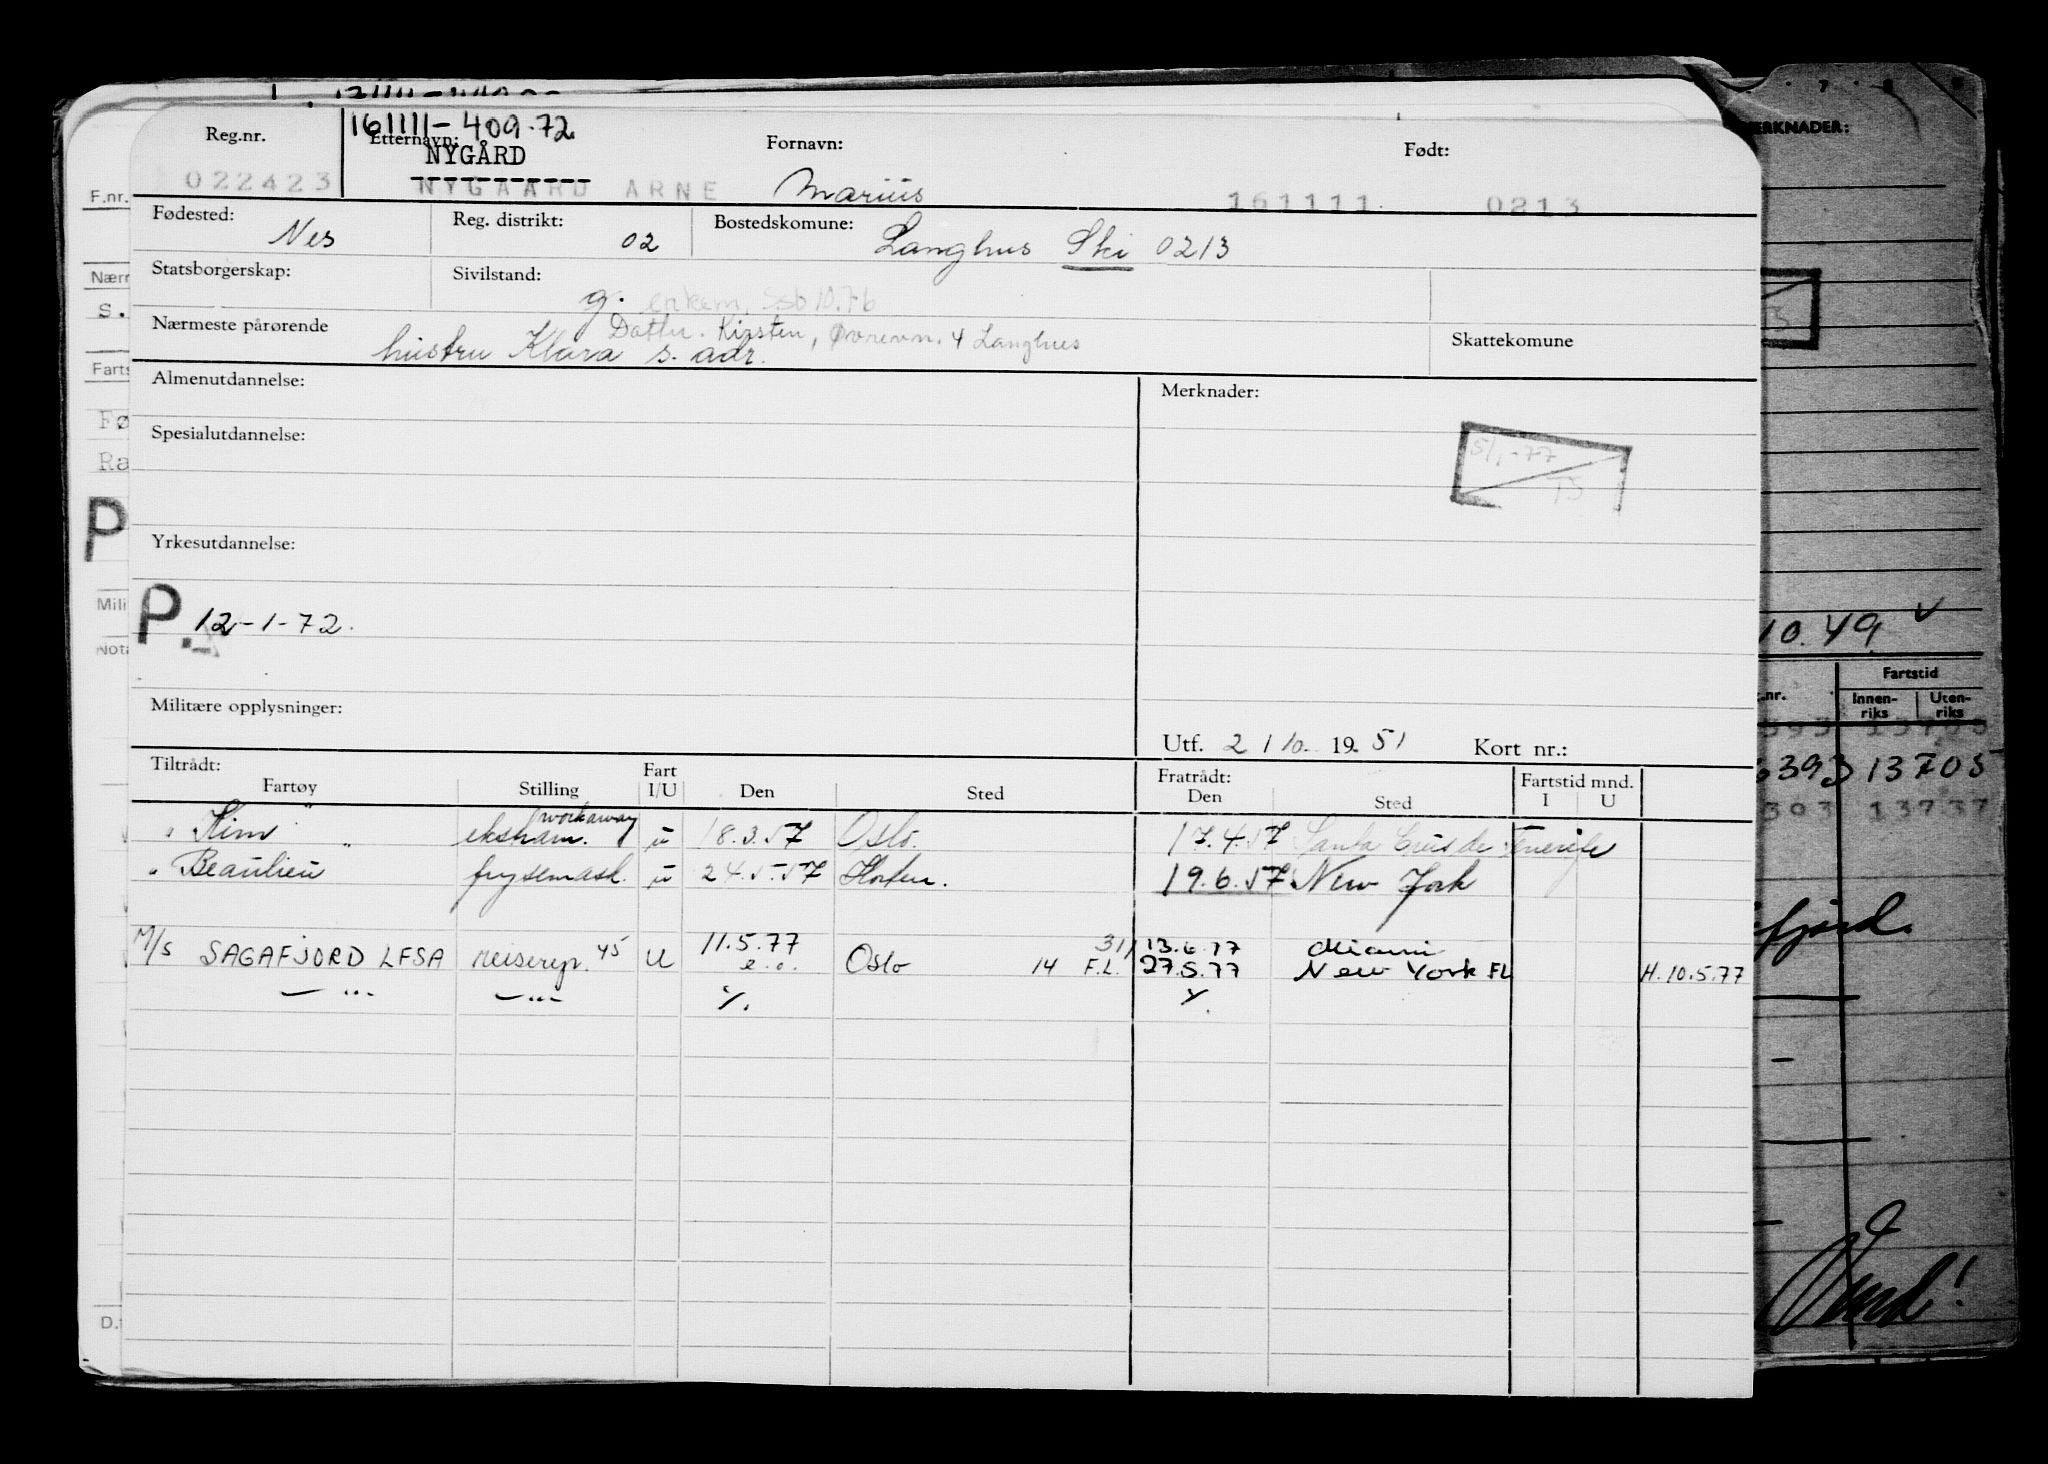 161111-409.72
Reg.nr. Etternavn: Fornavn: Født:
NYGÅRD
022423 NYGAARD ARNE Marius 161111 0213
Fødested: Nes Reg. distrikt: 02 Bostedskomune: Langhus Ski 0213
Statsborgerskap: Sivilstand: g. enkem. SSb 10.76
Nærmeste pårørende Datter. Kirsten, Øvrevn. 4 Langhus Skattekomune
hustru Klara s. adr.
Almenutdannelse: Merknader:
Spesialutdannelse: 5/1-77
Yrkesutdannelse:
P. 12-1-72.
Militære opplysninger:
Utf. 2/10. 19.51 Kort nr.:
Tiltrådt: Fart Fratrådt: Fartstid mnd.
Fartøy Stilling I/U Den Sted Den Sted I U
workaway
" Kim " eksham. u 18.3.57 Oslo. 17.4.57 Santa Cruz de Tenerife
" Beaulieu " frysemask. u 24.5.57 Horten. 19.6.57 New York
M/S SAGAFJORD LFSA reiserep. 45 U 11.5.77 Oslo 31/ 13.6.77 Miami
e.o. 14 F.L. 27.5.77 New York FL H. 10.5.77
— "' — — "' — %. %.
F.nr.
Nærr
s.
Farts
Fø
Ra
P
Mili
Nota
D.
MERKNADER:
10.49 v
Fartstid
.nr. Innenriks Utenriks
393 13705
6393 13705
393 13737
fjord.